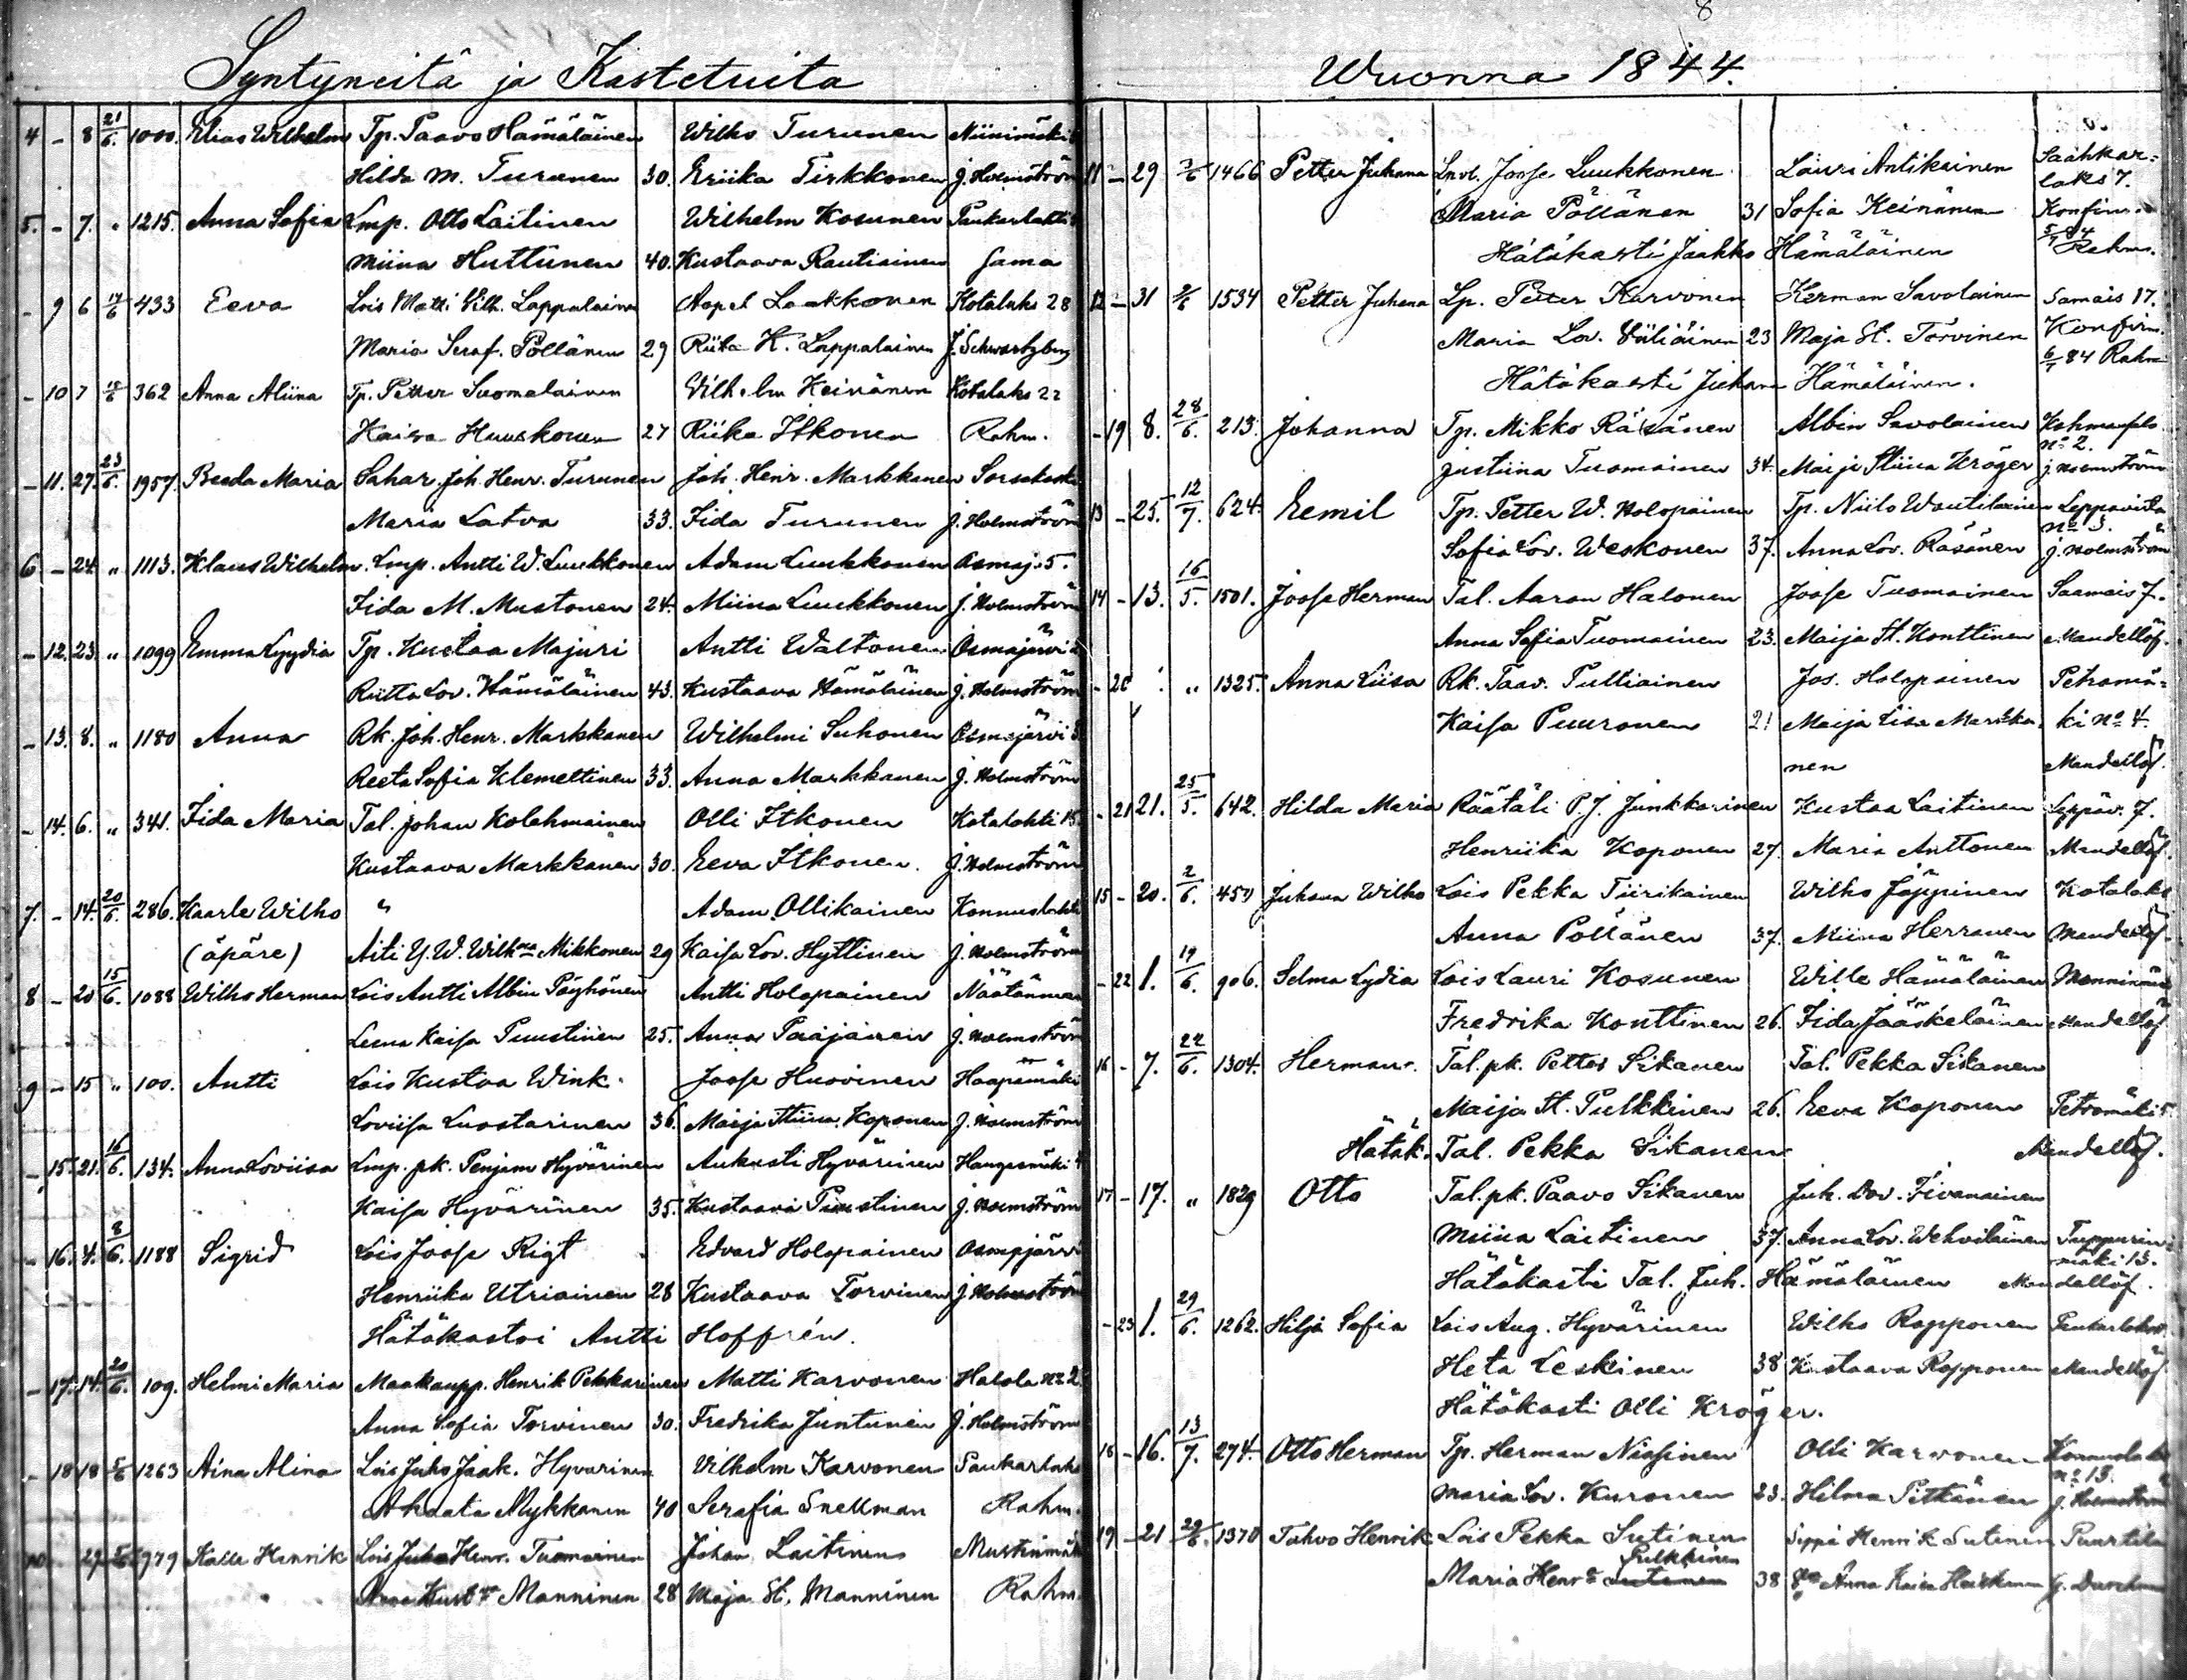 8
Syntyneitä ja Kastetuita
4 - 8 21/6. 1000. Elias Wilhelm Tp. Paavo Hämäläinen Wilho Turunen Niinimäki
Hilda M. Turunen 30. Eriika Tirkkonen J. Holmström
5. - 7. " 1215. Anna Sofia Lmp. Otto Laitinen Wilhelm Kosunen Paukarlahti
Miina Huttunen 40. Kustaava Rautiainen Sama
- 9 6 433 Eeva Lois Matti Vilh. Lappalainen Aapel Laakkonen Kotalaks 28
Maria Seraf. Pöllänen 29 Riika K. Lappalainen J. Schwartzberg
- 10 7 362 Anna Aliina Tp. Petter Suomalainen Vilhelm Keinänen Kotalaks 22
Kaisa Huuskonen 27 Riika Itkonen Rahm.
- 11. 27. 23/6. 1957. Beeda Maria Sahar. Joh. Henr. Turunen Joh. Henr. Markkanen Sorsakoski
Maria Latva 33. Iida Turunen J. Holmström
6 - 24. " 1113. Klaus Wilhelm Lmp. Antti W. Luukkonen Adam Luukkonen Osmaj. 5.
Iida M. Mustonen 24. Miina Luukkonen J. Holmström
- 12. 23. " 1099 Emma Lyydia Tp. Kustaa Majuri Antti Waltonen Osmajärvi
Riitta Lov. Hämäläinen 43. Kustaava Hämäläinen J. Holmström
- 13. 8. " 1180 Anna Rk. Joh. Henr. Markkanen Wilhelmi Suhonen Osmajärvi
Reeta Sofia Klemettinen 33. Anna Markkanen J. Holmström
- 14. 6. " 341. Iida Maria Tal. Johan Kolehmainen Olli Itkonen Kotalahti 15
Kustaava Markkanen 30. Eeva Itkonen. J. Holmström
7. - 14. 20/6. 286. Kaarle Wilho " Adam Ollikainen Konnuslahti
(äpäre) Äiti Y. W. Wilhna Mikkonen 29 Kaisa Lov. Hyttinen J. Holmström
8 - 20 15/6. 1088 Wilho Herman Lois Antti Albin Pöyhönen Antti Holopainen Näätänmaa
Leena Kaisa Puustinen 25. Anna Paajanen J. Holmström
9 - 15 " 100. Antti Lois Kustaa Wink. Joose Huovinen Haapamäki
Loviisa Luostarinen 36. Maija Stiina Koponen J. Holmström
- 15. 21. 16/6. 134. Anna Loviisa Lmp. pk. Penjam Hyvärinen Aukusti Hyvärinen
Kaisa Hyvärinen 35. Kustaava Puustinen J. Holmström
- 16. 4. 8/6. 1188 Sigrid Lois Joose Rigt Edvard Holopainen Osmajärvi
Henriika Utriainen 28 Kustaava Torvinen J. Holmström
Hätäkastoi Antti Hoffrén.
- 17. 14. 20/6. 109. Helmi Maria Maakaupp. Henrik Pekkarinen Matti Karvonen Halola no 2
Anna Sofia Torvinen 30. Fredrika Juntunen J. Holmström
- 18 18 5/6 1263 Aina Alina Lois Juho Jaak. Hyvärinen Vilhelm Karvonen Paukarlaks
Akaata Mykkänen 40 Serafia Snellman Rahm.
10 - 29 979 Kalle Henrik Lois Juho Henr. Tuomainen Johan Laitinen Mustinmäki
Manninen 28 Maja St. Manninen Rahm.
Wuonna 1844.
11 - 29 1466 Petter Juhana Joose Luukkonen Lauri Antikainen Saahkarlaks 7.
Maria Pöllänen 31 Sofia Keinänen Konfirm.
Hätäkasti Jaakko Hämäläinen 5/7 84 Rahm.
12 - 31 1534 Petter Juhana Lp. Petter Karvonen Herman Savolainen Samais 17.
Maria Lov. Väliäinen 23 Maja St. Torvinen Konfirm.
Hätäkasti Juhana Hämäläinen. 6/7 84 Rahm
- 19 8. 28/6. 213. Johanna Tp. Mikko Räisänen Albin Savolainen no 2.
Justiina Tuomainen 34. Maija Stiina Kröger J. Holmström
13 - 25. 12/7. 624. Eemil Tp. Petter W. Holopainen Tp. Niilo Wautilainen Leppävirta no 3.
Sofia Lov. Weskonen 37. Anna Lov. Räsänen J. Holmström
14 - 13. 16/5. 1501. Joose Herman Tal. Aaron Halonen Joose Tuomainen Saamais 7.
Anna Sofia Tuomainen 23. Maija St. Konttinen Mandellöf.
- 20 " 1325. Anna Liisa Rk. Taav. Pulliainen Jos. Holopainen Petromä=
Kaisa Puuronen 21 Maija Liisa Markka- ki no 4.
nen Mandellöf.
- 21 21. 25/5. 642. Hilda Maria Räätäli P. J. Junkkarinen Kustaa Laitinen Leppäv. 7.
Henriika Koponen 27. Maria Anttonen Mandellöf.
15 - 20. 2/6. 450 Juhana Wilho Lois Pekka Tiirikainen Wilho Jäppinen Kotalaks
Anna Pöllänen 37. Miina Herranen Mandellöf.
- 22 1. 19/6. 906. Selma Lydia Lois Lauri Kosunen Wille Hämäläinen
Fredrika Konttinen 26. Iida Jääskeläinen Mandellöf
16 - 7. 22/6. 1304. Herman. Tal. pk. Petter Sikanen Tal. Pekka Sikanen
Maija St. Pulkkinen 26. Eeva Koponen Petromäki 5.
Hätäk. Tal. Pekka Sikanen Mandellöf.
17 - 17. " 1829 Otto Tal. pk. Paavo Sikanen Juh. Dav. Tivanainen
Miina Laitinen 37. Anna Lov. Wehviläinen Tuppurin=
mäki 13.
Hätäkasti Tal. Juh. Hämäläinen Mandellöf.
- 23 1. 29/6. 1262. Hilja Sofia Lois Aug. Hyvärinen Wilho Ropponen Paukarlahti
Heta Leskinen 38 Kustaava Ropponen Mandellöf
Hätäkasti Olli Kröger.
18 - 16. 13/7. 274. Otto Herman Tp. Herman Nissinen Olli Karvonen Konnuslahti
no 13.
Maria Lov. Kuronen 23. Hilma Pitkänen J. Holmström
19 - 21 29/6. 1370 Tahvo Henrik Lois Pekka Sutinen Seppä Henrik Sutinen Puurtila
Pulkkinen
Maria Henr. Sutinen 38 Anna Kaisa